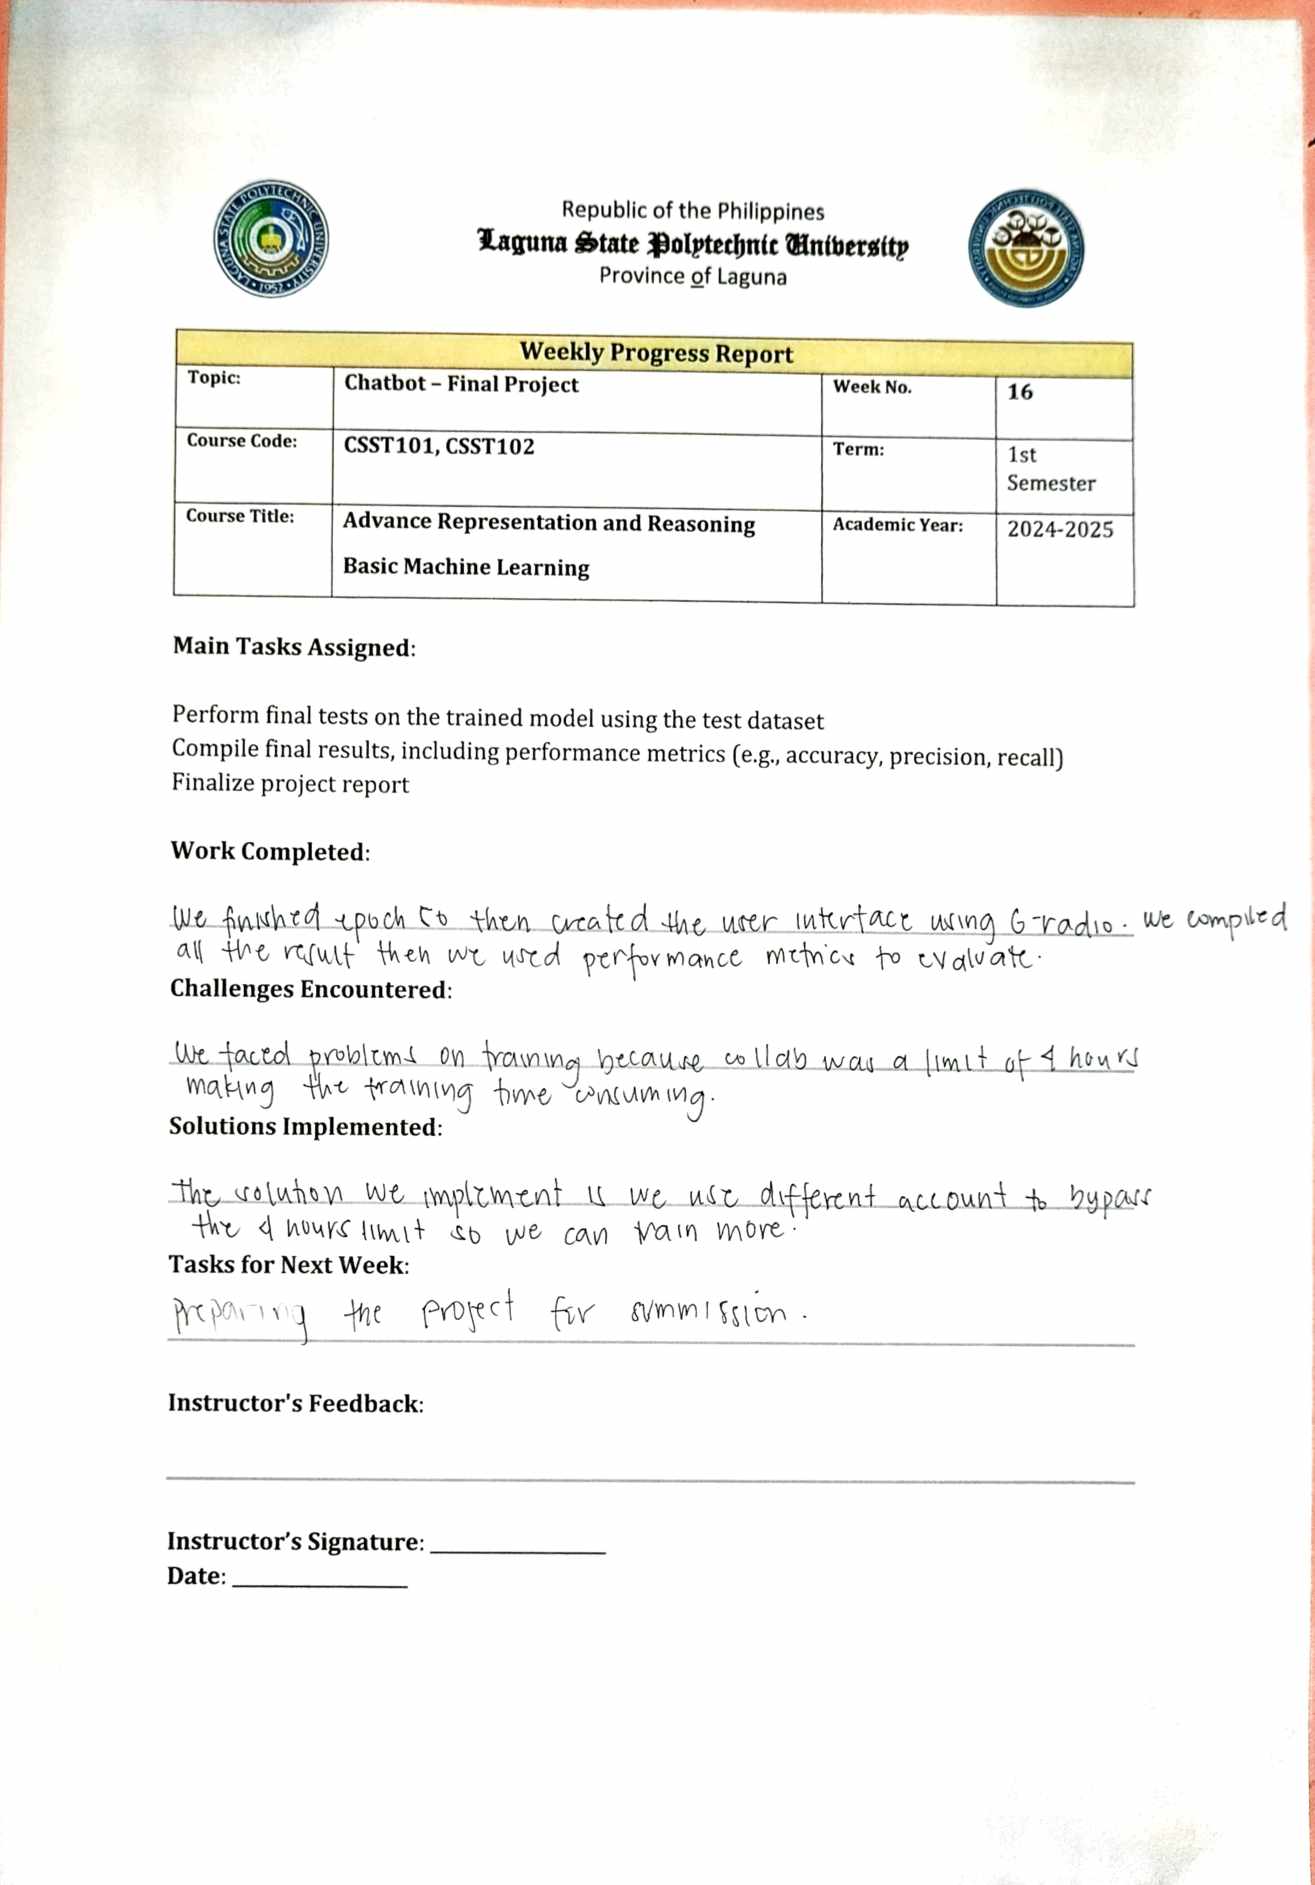 Republic of the Philippines
Laguna State Polytechnic University
Province of Laguna
LAGUNA STATE POLYTECHNIC UNIVERSITY
1952
Weekly Progress Report
Topic: Chatbot – Final Project Week No. 16
Course Code: CSST101, CSST102 Term: 1st
Semester
Course Title: Advance Representation and Reasoning Academic Year: 2024-2025
Basic Machine Learning
Main Tasks Assigned:
Perform final tests on the trained model using the test dataset
Compile final results, including performance metrics (e.g., accuracy, precision, recall)
Finalize project report
Work Completed:
We finished epoch 50 then created the user interface using G-radio. We compiled
all the result then we used performance metrics to evaluate.
Challenges Encountered:
We faced problems on training because collab was a limit of 4 hours
making the training time consuming.
Solutions Implemented:
the solution we implement is we use different account to bypass
the 4 hours limit so we can train more.
Tasks for Next Week:
preparing the project for summission.
Instructor's Feedback:
Instructor's Signature:
Date: